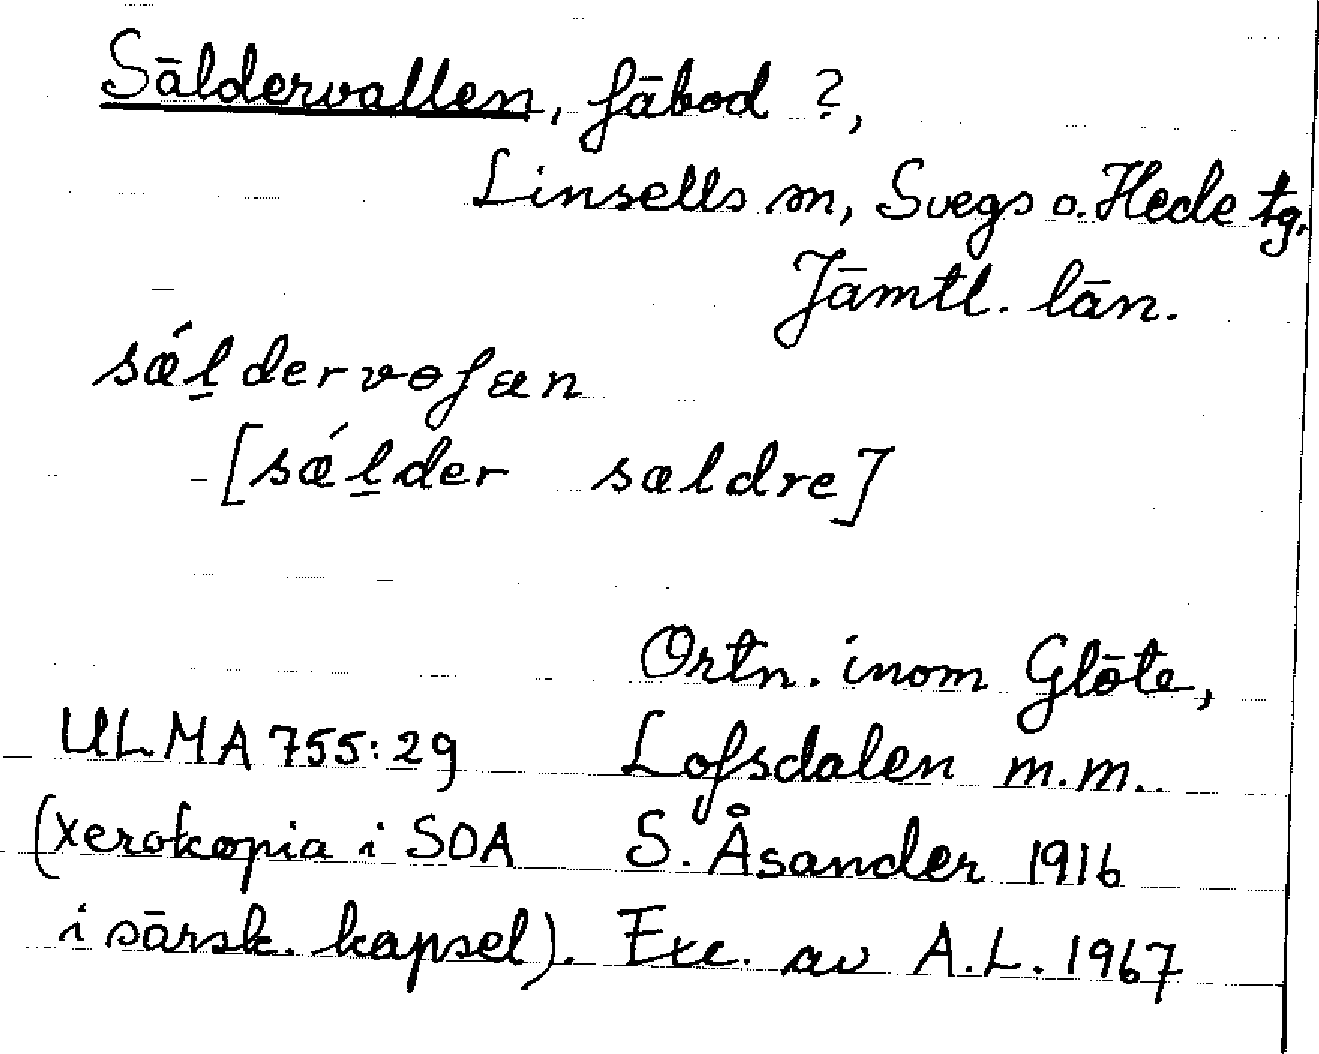 Säldervallen, fäbod ?,
Linsells sn, Svegs o. Hede tg.
Jämtl. län.
sǽl̲dervoſæn
[sǽl̲der sældre]
Ortn. inom Glöte,
ULMA 755:29 Lofsdalen m.m.
(xerokopia i SOA S. Åsander 1916
i särsk. kapsel). Exc. av A.L. 1967